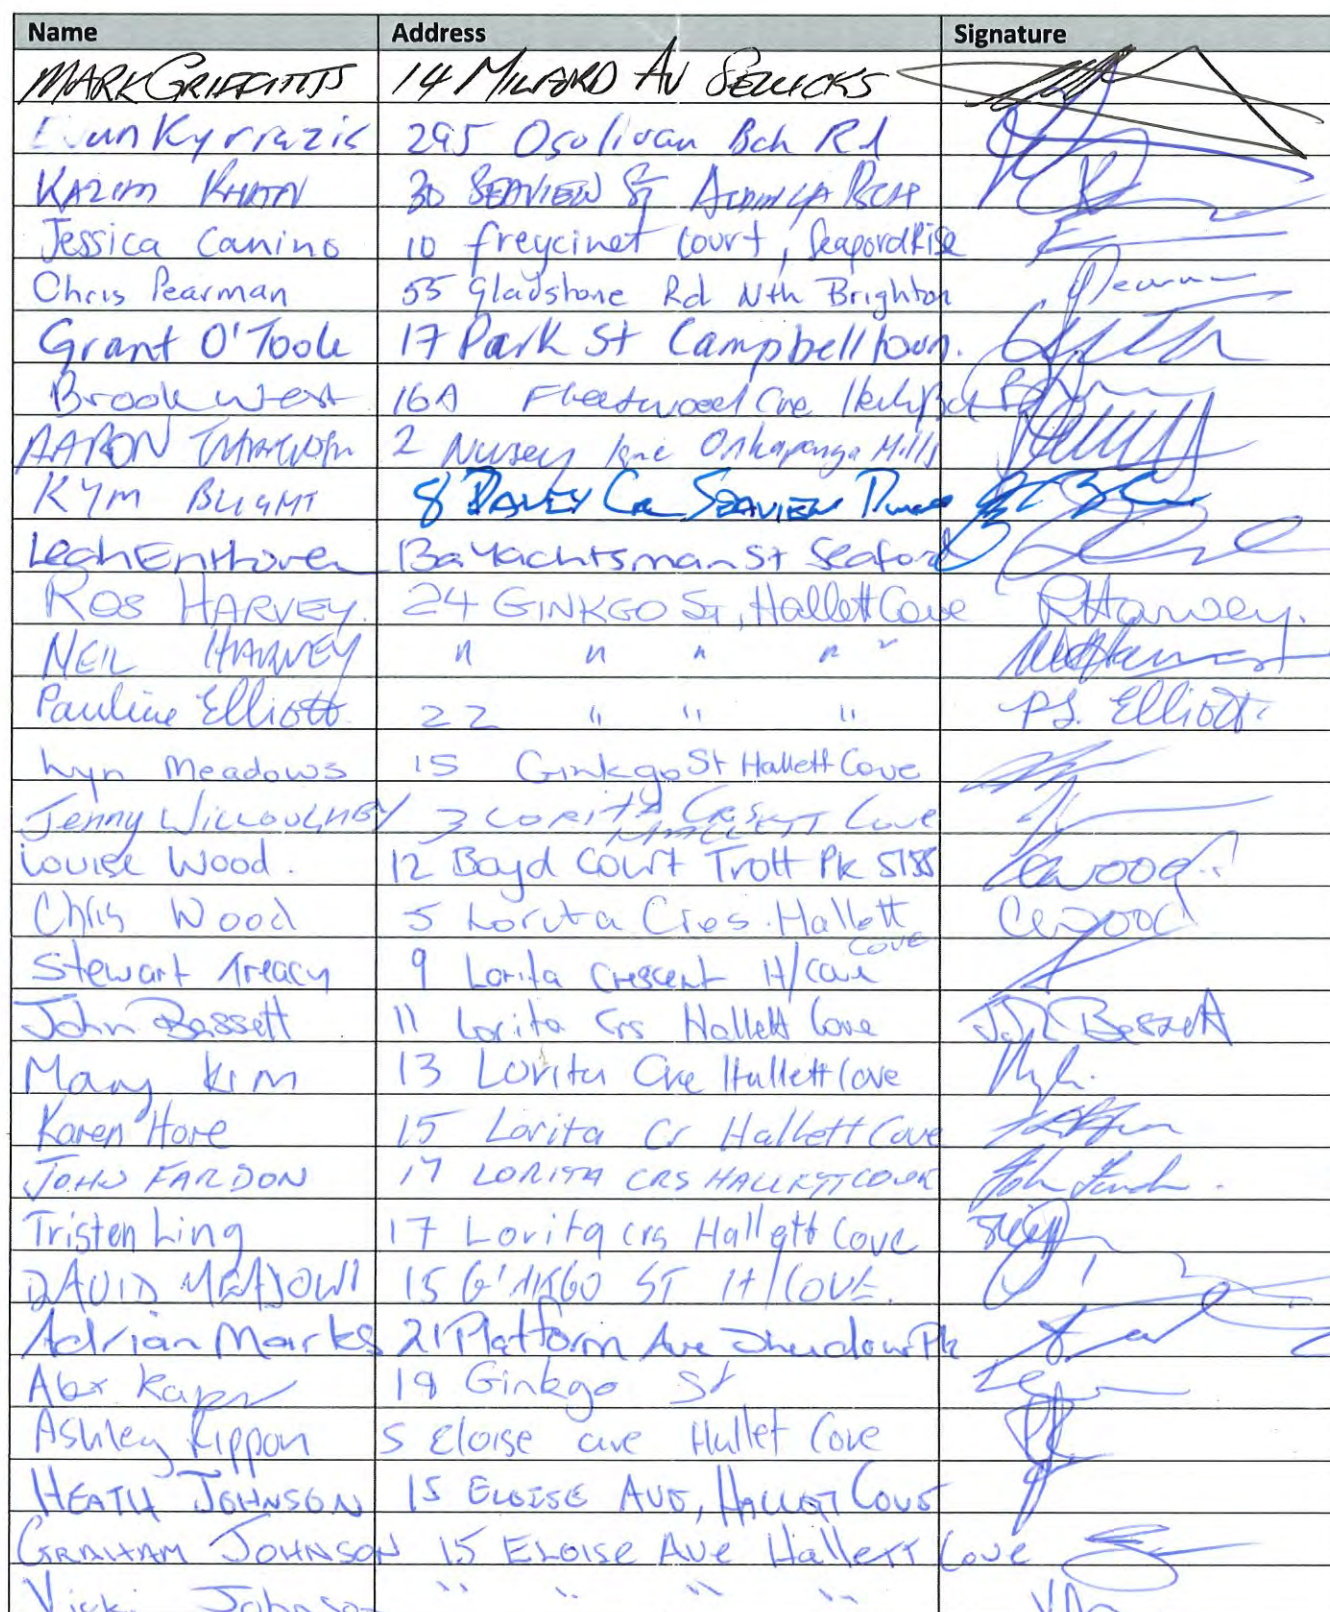 Name Address Signature
MARK GRIFFITHS 14 MILFORD AV SELLICKS
Kyrriazis 295 Osolivan Bch Rd
KAZIM KHAN 30 SEAVIEW ST
Jessica Canino 10 freycinet court, SeafordRise
Chris Pearman 55 Gladstone Rd Nth Brighton Pearman
Grant O'Toole 17 Park St Campbelltown.
Brook West 16A Fleetwood Cre
AARON 2 Nursey lane Onkapanga Mills
KYM BLIGHT 8 DAVEY Cr SEAVIEW Downs
Leah Enthoven 13a Yachtsman St Seaford
ROS HARVEY. 24 GINKGO ST, Hallett Cove RHarvey.
NEIL HARVEY " " " " "
Pauline Elliott 22 " " " P.S. Elliott
Lyn Meadows 15 Ginkgo St Hallett Cove
Jenny WILLOUGHBY 3 LORITA CRS HALLETT Cove
Louise Wood. 12 Boyd Court Trott Pk 5158
Chris Wood 5 Lorita Cres. Hallett Cove CWood
Stewart Treacy 9 Lorita Crescent H/Cove
John Bassett 11 Lorita Crs Hallett Cove
Mary Kim 13 Lorita Cre Hallett Cove
Karen Hore 15 Lorita Cr Hallett Cove
JOHN FARDON 17 LORITA CRS HALLETT COVE
Tristen Ling 17 Lorita crs Hallett Cove
DAVID MEADOWS 15 GINKGO ST H/COVE.
Adrian Marks 21 Platform Ave Sheidow Pk
Alex 19 Ginkgo St
Ashley Rippon 5 Eloise ave Hallet Cove
HEATH JOHNSON 15 ELOISE AVE, HALLETT COVE
GRAHAM JOHNSON 15 ELOISE AVE Hallett Cove
Vicki Johnson " " " "